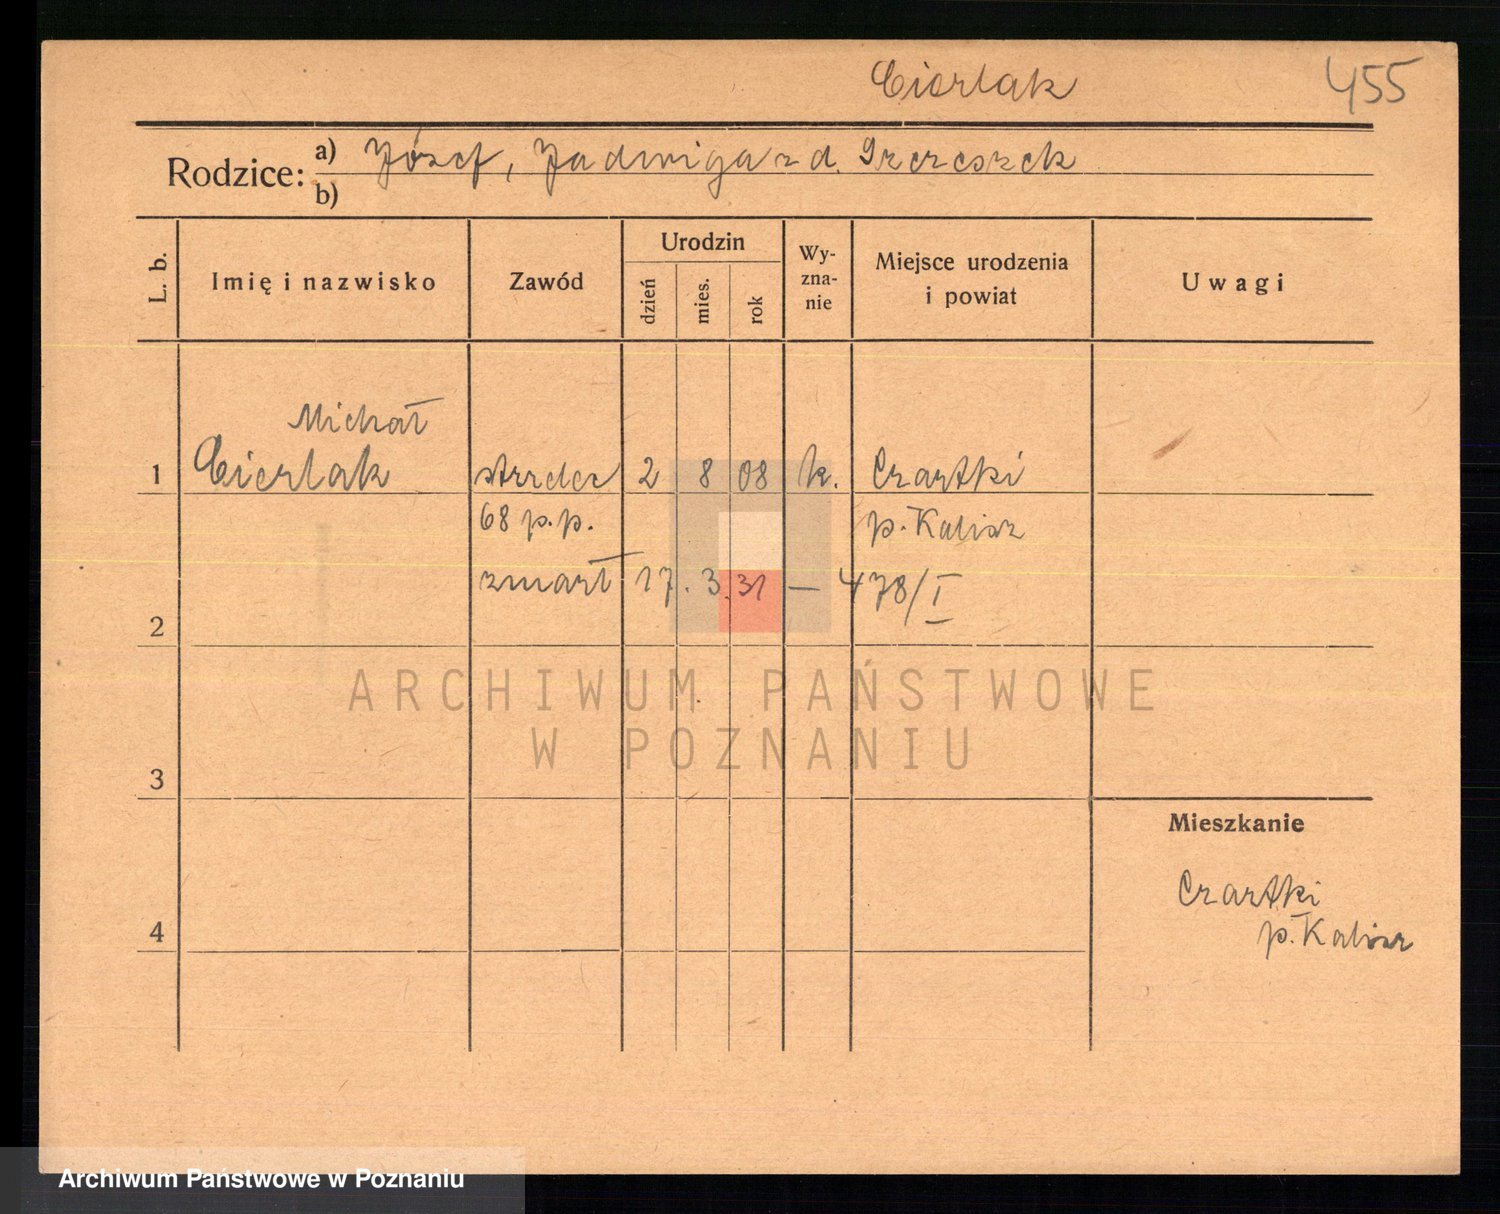 Cierlak 455
Rodzice: a) Józef, Jadwiga z d.
b)
L. b. Imię i nazwisko Zawód Urodzin dzień mies. rok Wy-zna-nie Miejsce urodzenia i powiat Uwagi
Michał
1 Cierlak strzelec 2 8 08 k. Czartki
68 p.p. p. Kalisz
zmarł 17. 3. 31 — 478/I
2
ARCHIWUM PAŃSTWOWE
W POZNANIU
3
Mieszkanie
Czartki
4 p. Kalisz
Archiwum Państwowe w Poznaniu